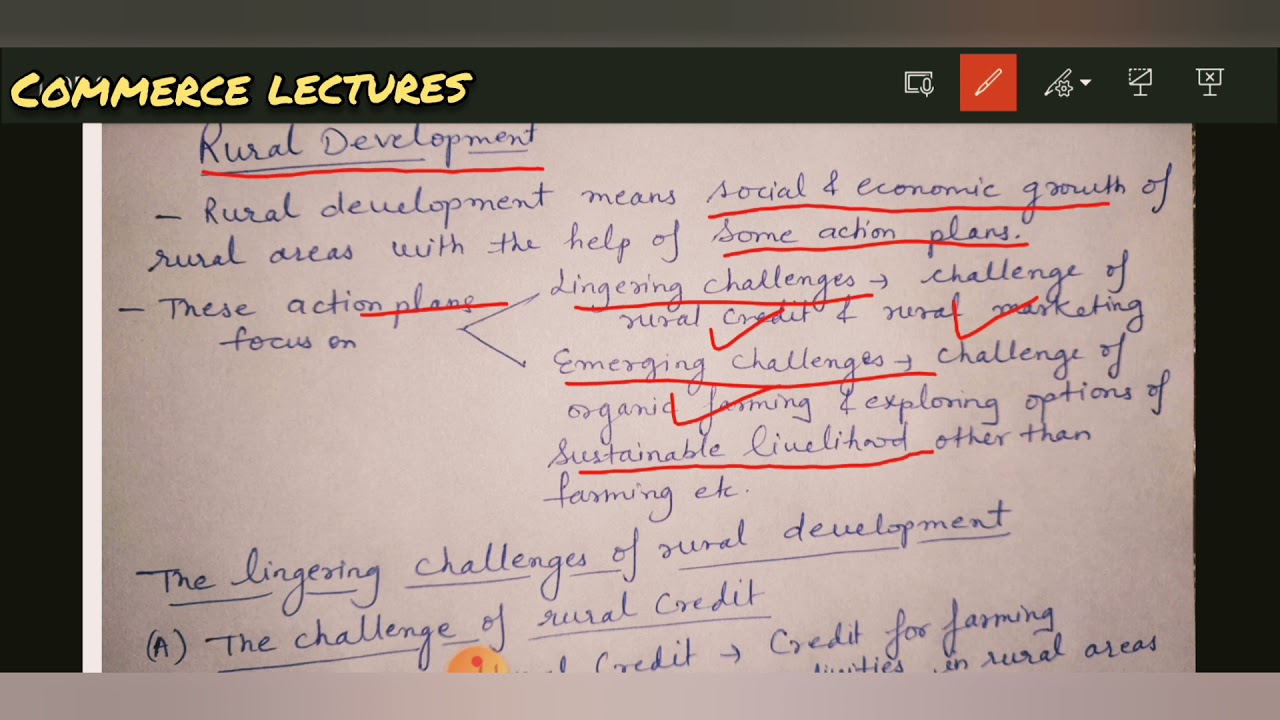 COMMERCE LECTURES
Rural Development
- Rural development means social & economic growth of
rural areas with the help of some action plans.
- These action plans
focus on
Lingering challenges → challenge of
rural credit & rural marketing
Emerging challenges → challenge of
organic farming & exploring options of
sustainable livelihood other than
farming etc.
The lingering challenges of rural development
(A) The challenge of rural credit
Credit → Credit for farming
in rural areas